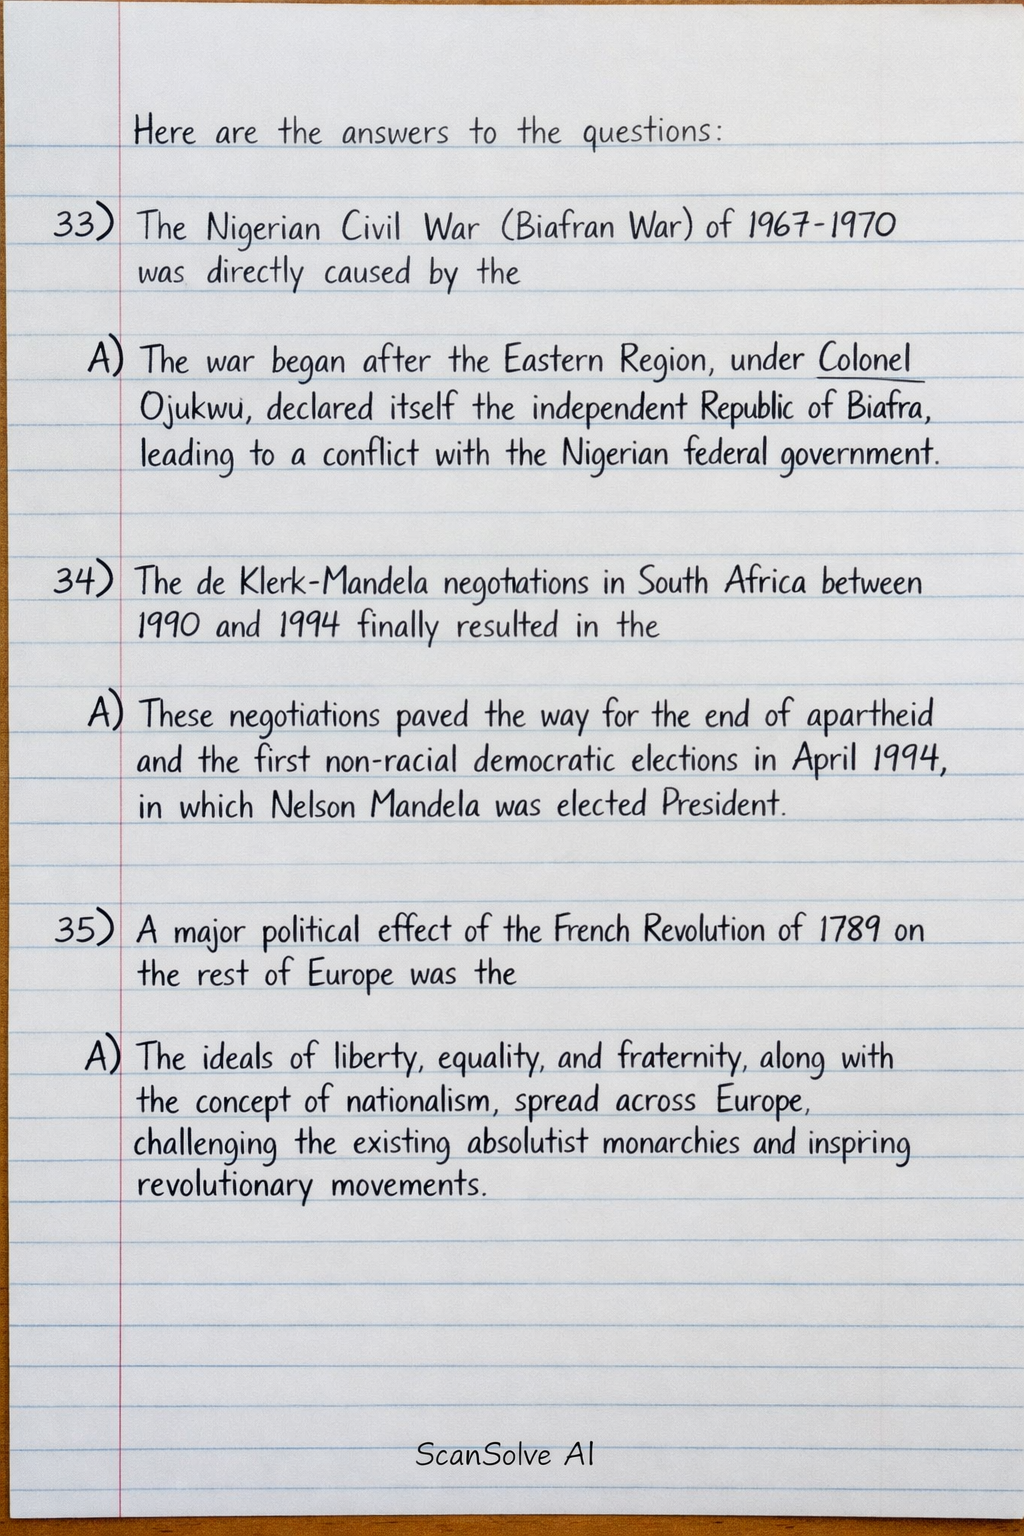 Here are the answers to the questions:
33) The Nigerian Civil War (Biafran War) of 1967-1970
was directly caused by the
A) The war began after the Eastern Region, under Colonel
Ojukwu, declared itself the independent Republic of Biafra,
leading to a conflict with the Nigerian federal government.
34) The de Klerk-Mandela negotiations in South Africa between
1990 and 1994 finally resulted in the
A) These negotiations paved the way for the end of apartheid
and the first non-racial democratic elections in April 1994,
in which Nelson Mandela was elected President.
35) A major political effect of the French Revolution of 1789 on
the rest of Europe was the
A) The ideals of liberty, equality, and fraternity, along with
the concept of nationalism, spread across Europe,
challenging the existing absolutist monarchies and inspiring
revolutionary movements.
ScanSolve AI